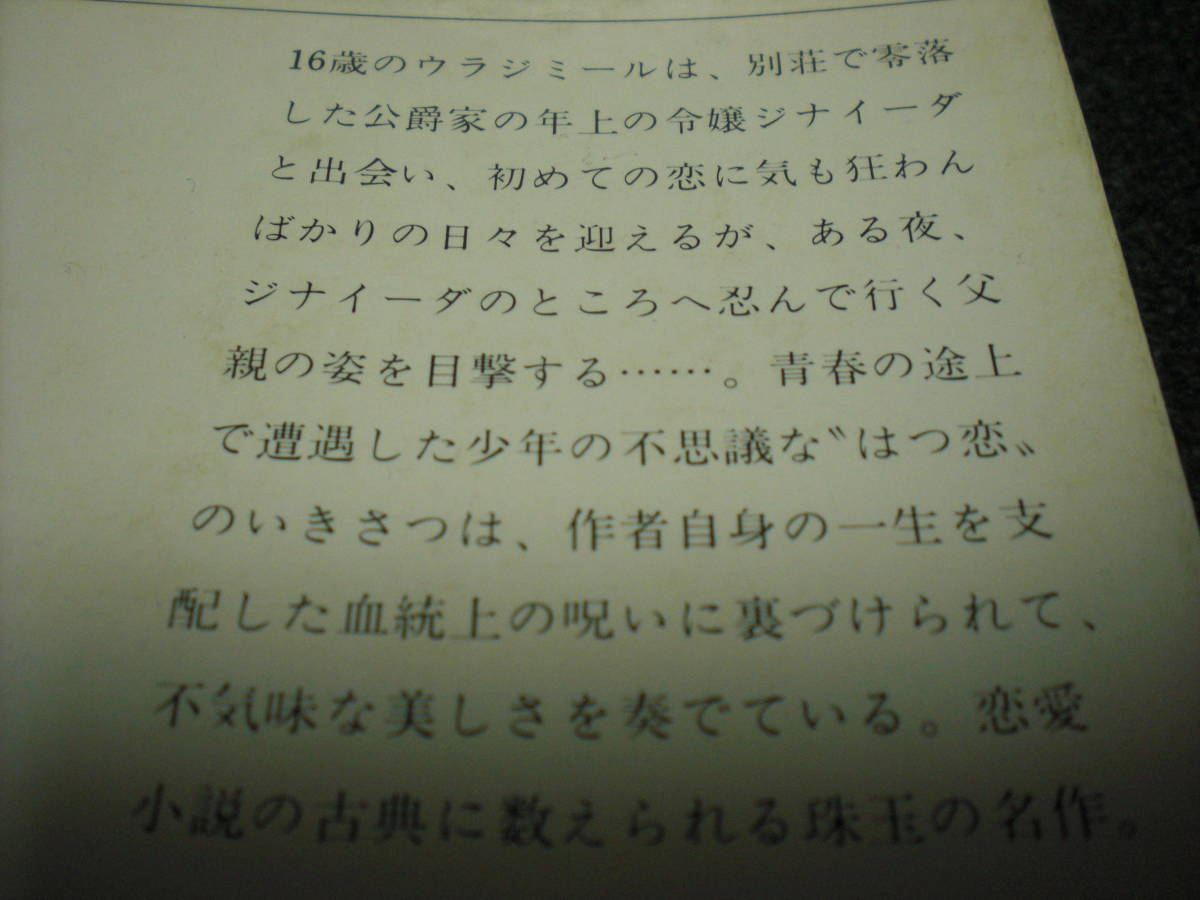 16歳のウラジミールは、別荘で零落
した公爵家の年上の令嬢ジナイーダ
と出会い、初めての恋に気も狂わん
ばかりの日々を迎えるが、ある夜、
ジナイーダのところへ忍んで行く父
親の姿を目撃する……。青春の途上
で遭遇した少年の不思議な〝はつ恋〟
のいきさつは、作者自身の一生を支
配した血統上の呪いに裏づけられて、
不気味な美しさを奏でている。恋愛
小説の古典に数えられる珠玉の名作。